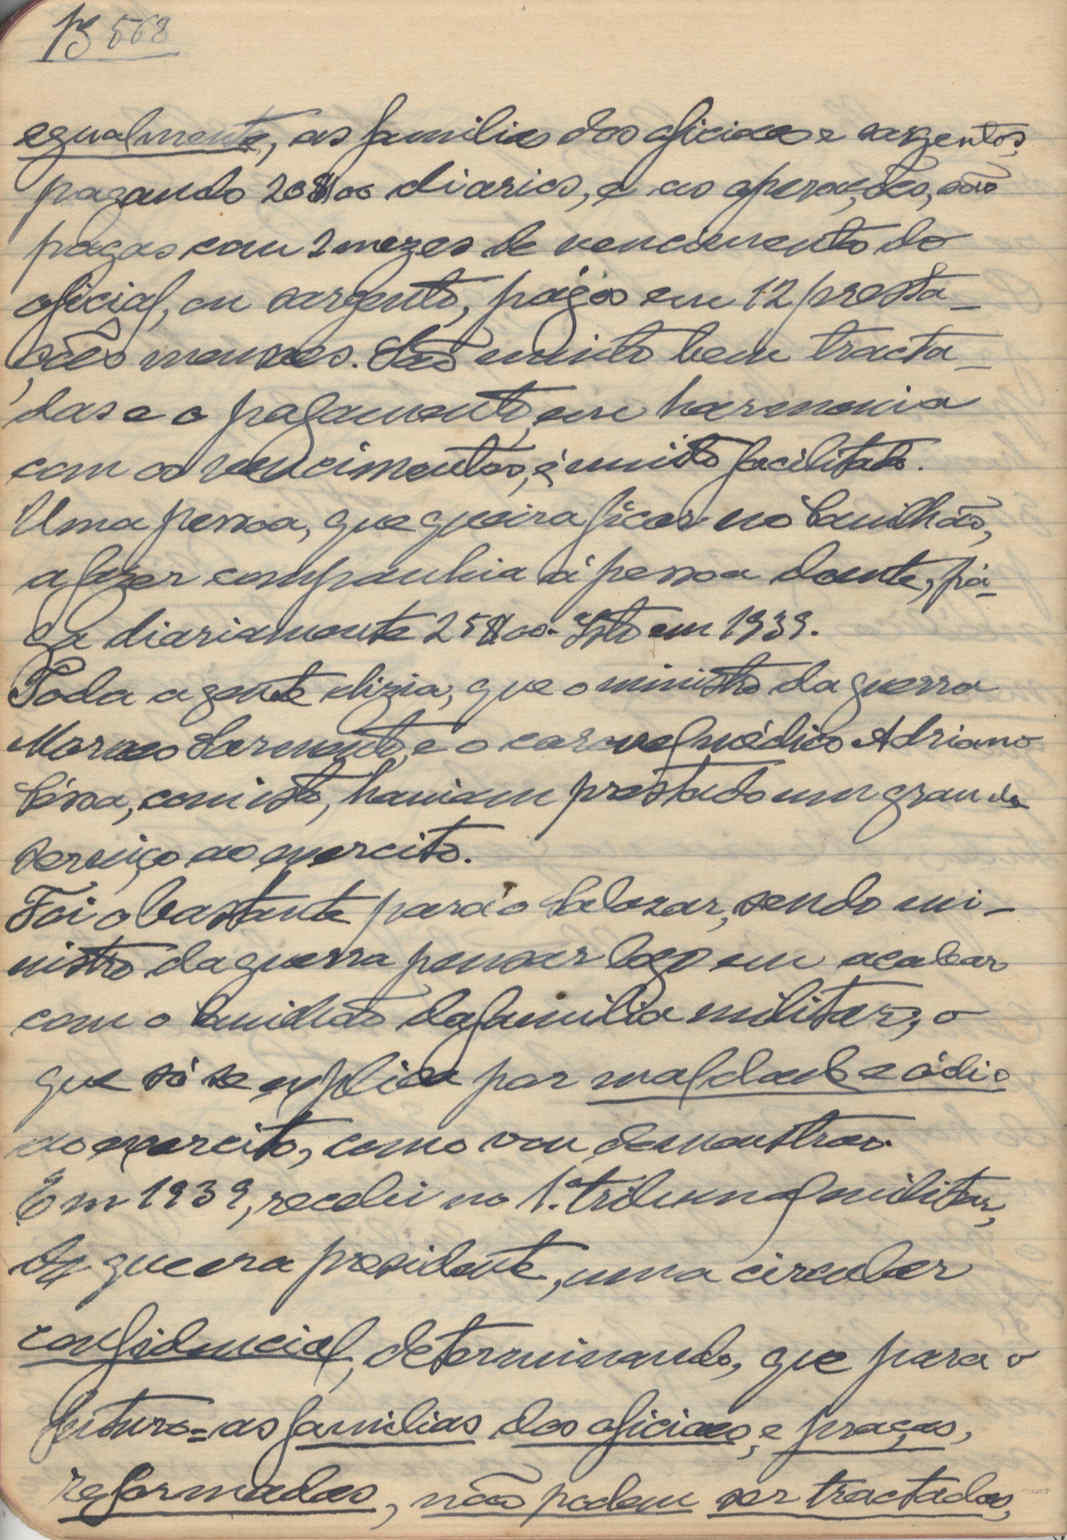 568
egualmente, as familias dos oficiaes e sargentos,
pagando 20$00 diarios, e as operações, são
pagas com 2 mezes de vencimento do
oficial, ou sargento, págos em 12 presta-
ções mensaes. São muito bem tracta-
das e o pagamento, em harmonia
com os vencimentos, é muito facilitado.
Uma pessoa, que queira ficar no Pavilhão,
a fazer companhia á pessoa doente, pá-
ga diariamente 25$00. Isto em 1939.
Toda a gente dizia, que o ministro da guerra
Moraes Sarmento, e o coronel médico Adriano
com isto, haviam prestado um grande
serviço ao exercito.
Foi o bastante para o Salazar, sendo mi-
nistro da guerra pensar logo em acabar
com o Pavilhão da familia militar, o
que só se explica por maldade e ódio
ao exercito, como vou demonstrar.
Em 1939, recebi no 1.º tribunal militar,
de que era presidente, uma circular
confidencial, determinando, que para o
futuro = as familias dos oficiaes, e praças,
reformados, não podem ser tractadas,